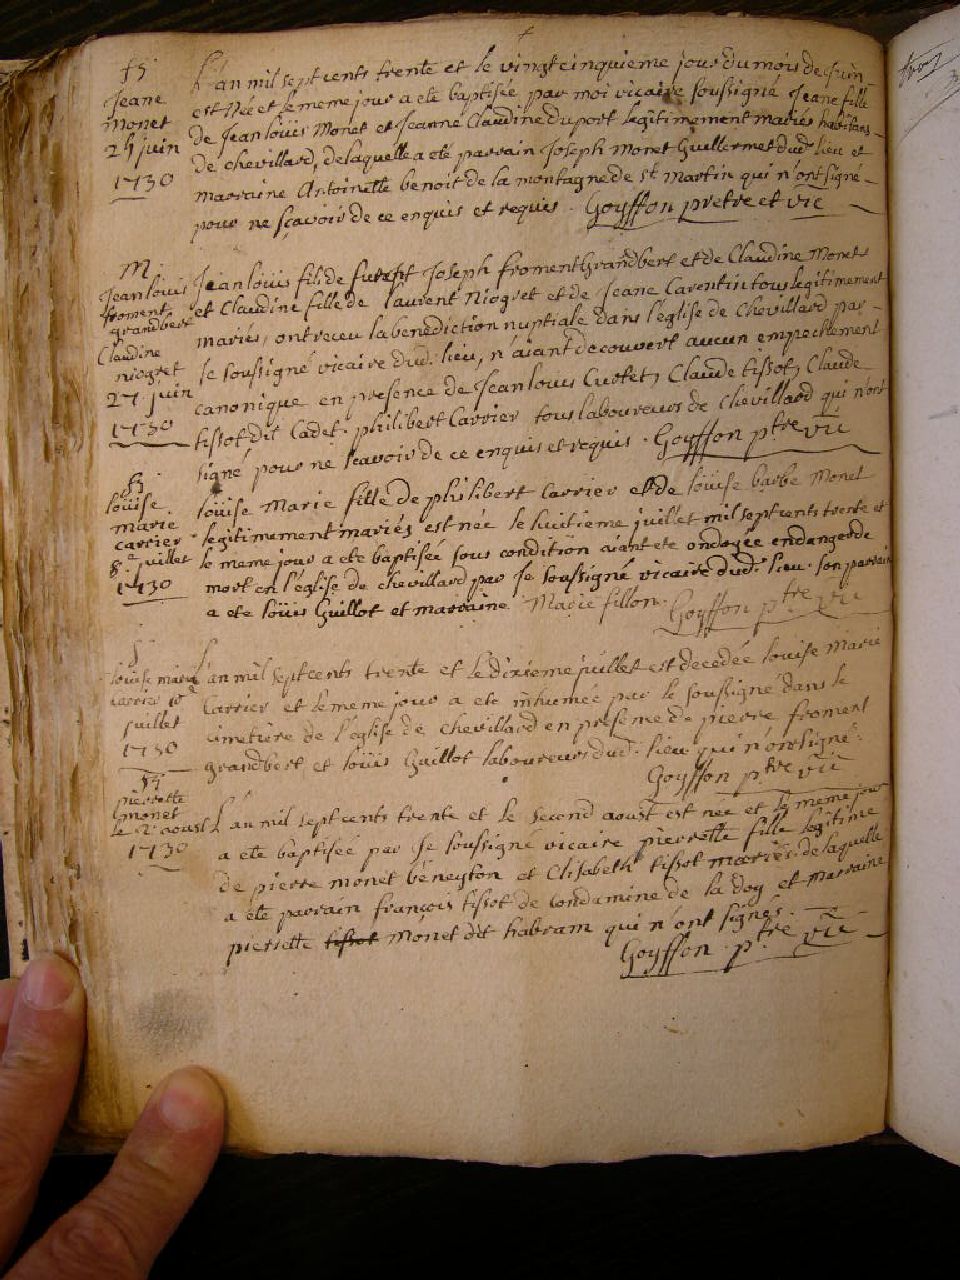 Jeane
monet
25 juin
1730
L'an mil sept cents trente et le vingt cinquieme jour du mois de juin
est Née et le meme jour a eté baptisée par moi vicaire soussigné Jeane fille
de Jean loüis Monet et Jeanne Claudine duport legitimement mariés habitans
de chevillard, de laquelle a eté parrain Joseph Monet Guillermet dud. lieu et
marraine Antoinette benoit de la montagne de st martin qui n'ont signé
pour ne sçavoir de ce enquis et requis. Goyffon pretre et vic
M.
Jean louis
froment
grandbert
Claudine
niogret
27 juin
1730
Jean loüis fils de Joseph froment Grandbert et de Claudine Monet
et Claudine fille de laurent Niogret et de Jeane Carentin tous legitimement
mariés, ont receu la benediction nuptiale dans l'eglise de Chevillard par
Je soussigné vicaire dud. lieu, n'aiant decouvert aucun empechement
canonique en presence de Jean louis Curtet, Claude tissot, Claude
tissot dit Cadet. philibert Carrier tous laboureurs de Chevillard qui n'ont
signé pour ne scavoir de ce enquis et requis. Goyffon ptre vic
loüise
marie
carrier
8e juillet
1730
loüise Marie fille de philibert Carrier et de loüise barbe Monet
legitimement mariés est née le huitieme juillet mil sept cents trente et
le meme jour a eté baptisée sous condition aiant ete ondoyée en danger de
mort en l'église de chevillard par Je soussigné vicaire dud. lieu. son parrain
a eté loüis Guillot et marraine Marie fillon. Goyffon ptre vic
S
louise marie
Carrier 10e
juillet
1730
L'an mil sept cents trente et le dixieme juillet est decedée louise Marie
Carrier et le meme jour a eté inhumée par le soussigné dans le
cimetière de l'église de Chevillard en presence de pierre froment
grandbert et loüis Guillot laboureurs dud. lieu qui n'ont signé.
Goyffon ptre vic
pierrette
monet
le 2e aoust
1730
L'an mil sept cents trente et le second aoust est née et le meme jour
a eté baptisée par Je soussigné vicaire pierrette fille legitime
de pierre monet béneyton et Elisabeth tissot mariés. de laquelle
a eté parrain françois tissot de condamine de la doy et marraine
pierrette tissot Monet dit habram qui n'ont signés.
Goyffon ptre vic